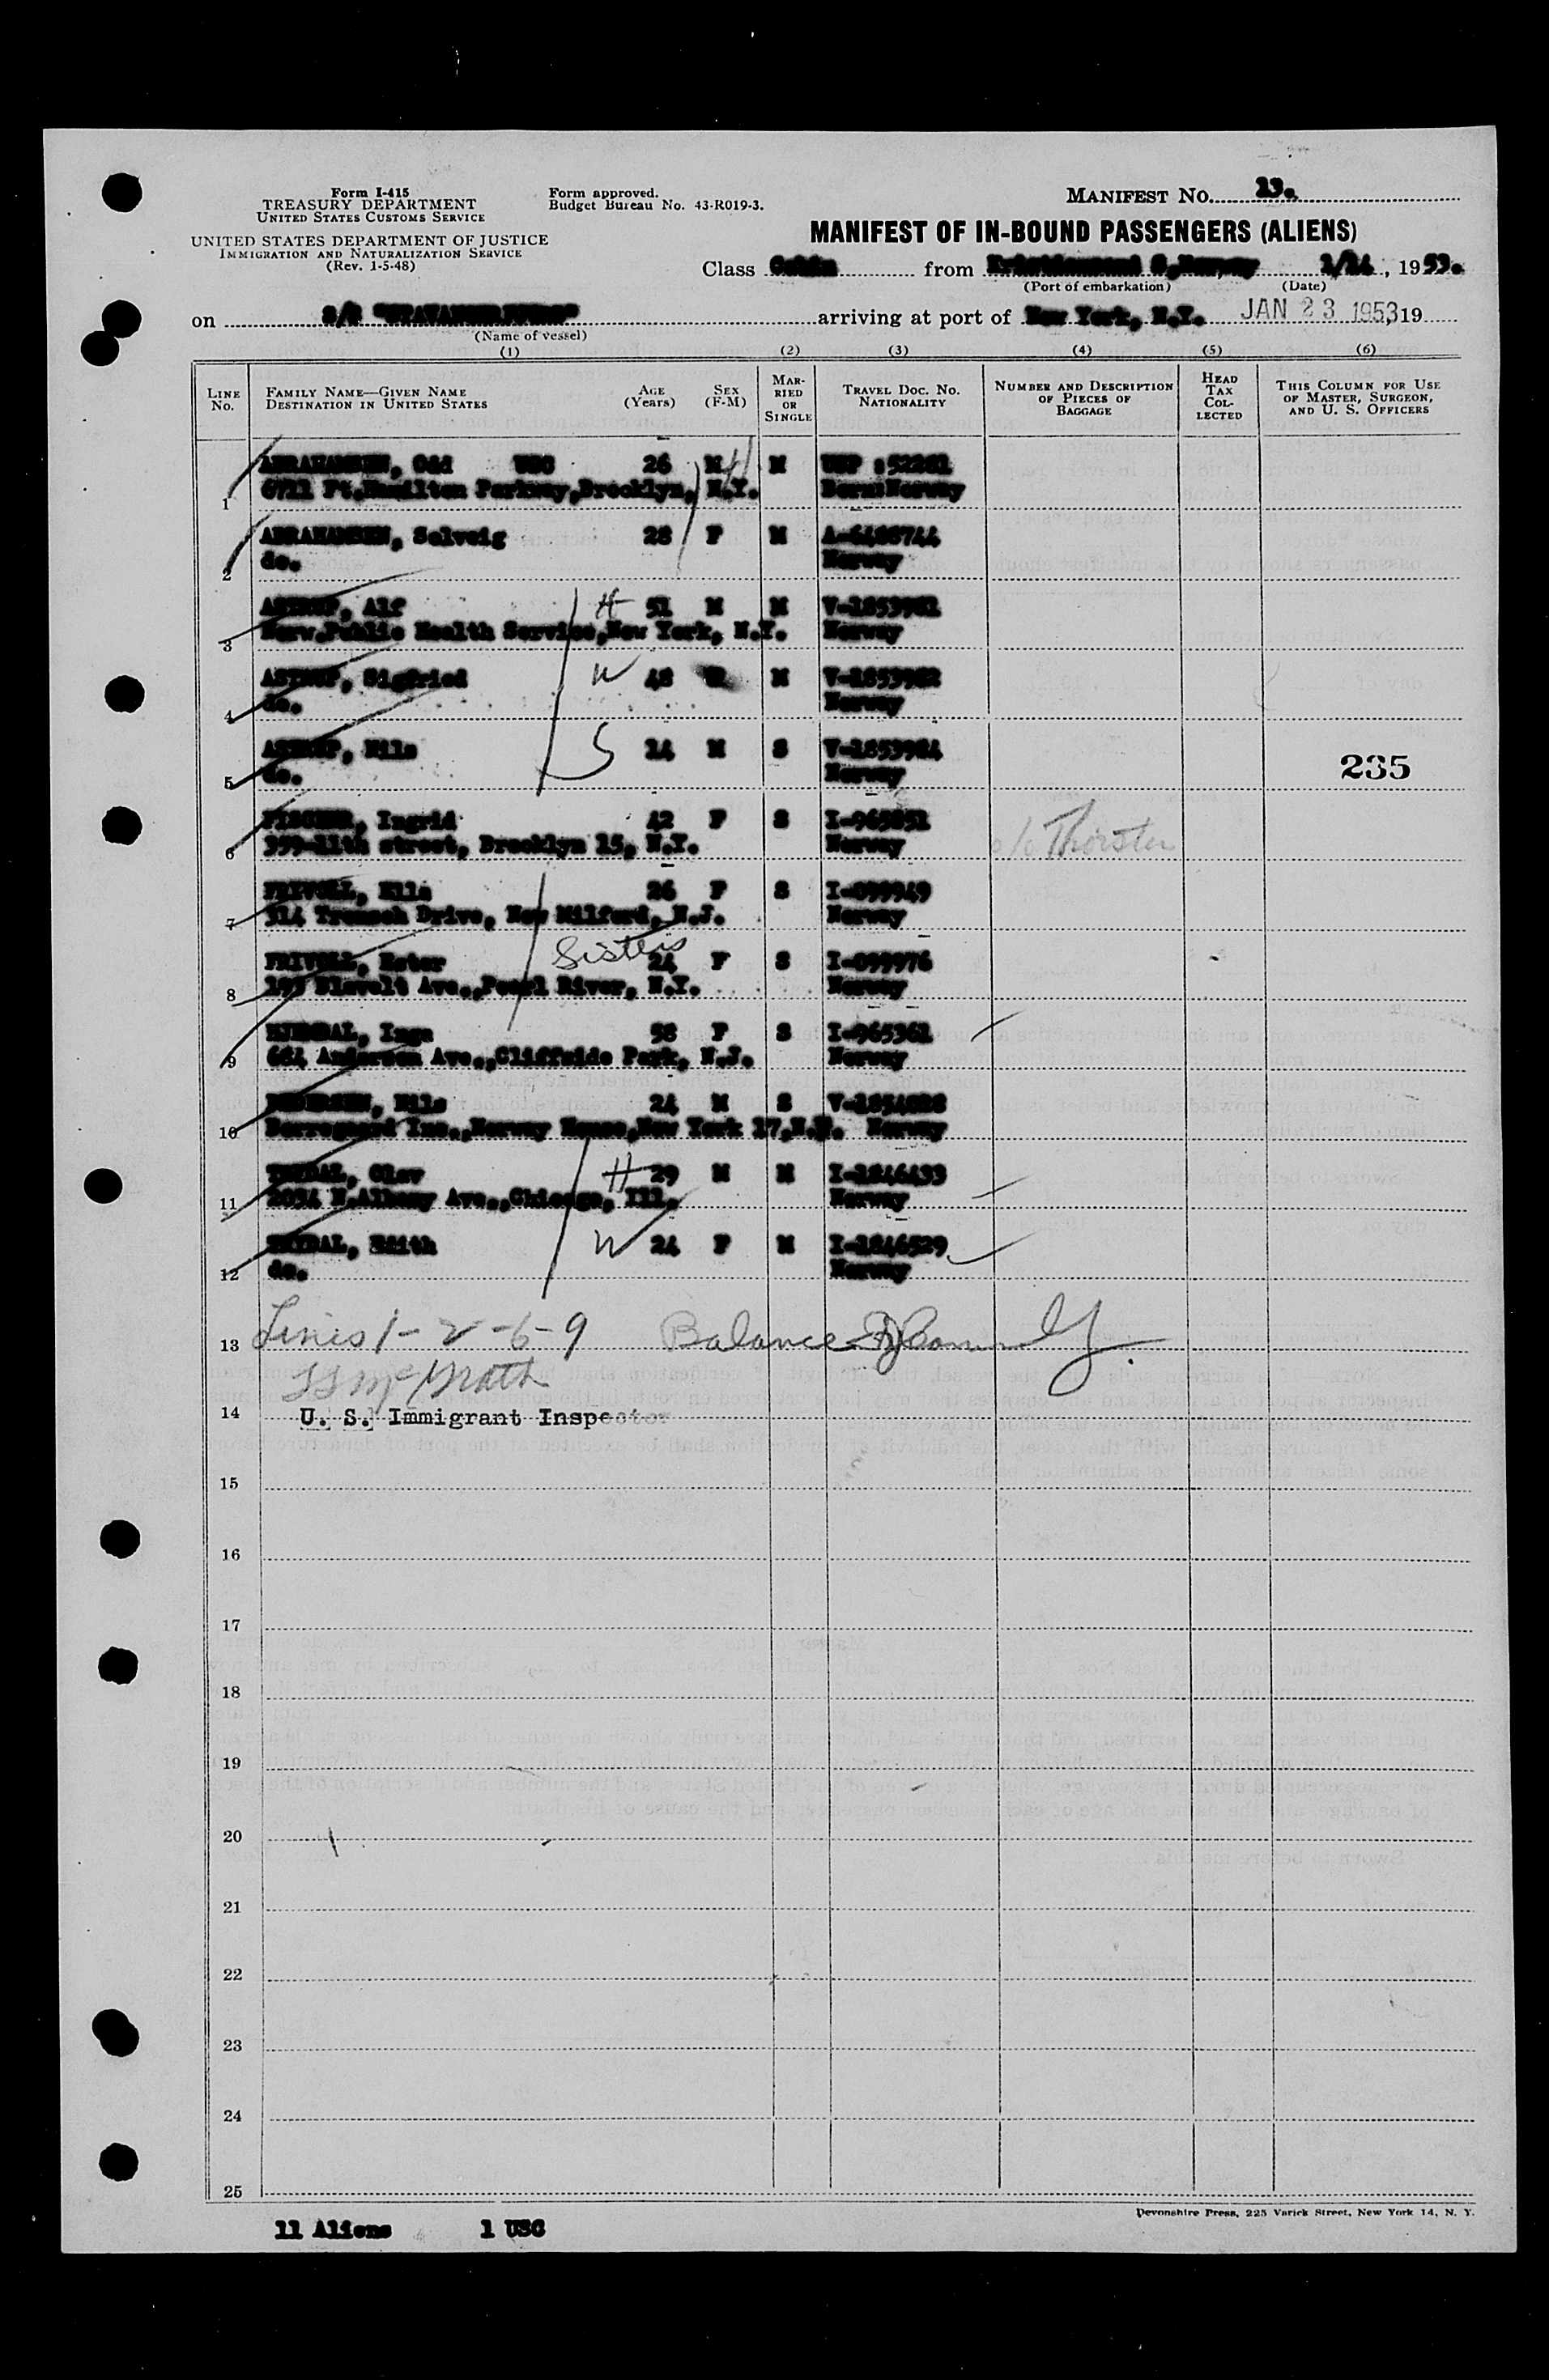 Form I-415
TREASURY DEPARTMENT
UNITED STATES CUSTOMS SERVICE
UNITED STATES DEPARTMENT OF JUSTICE
IMMIGRATION AND NATURALIZATION SERVICE
(Rev. 1-5-48)
Form approved.
Budget Bureau No. 43-R019-3.
MANIFEST NO. 13.
MANIFEST OF IN-BOUND PASSENGERS (ALIENS)
Class Cabin from Kristiansand S, Norway 1953.
(Port of embarkation) (Date)
on S/S "STAVANGERFJORD" arriving at port of New York, N.Y. JAN 23 1953 19
(Name of vessel)
(1) (2) (3) (4) (5) (6)
LINE NO. FAMILY NAME—GIVEN NAME DESTINATION IN UNITED STATES AGE (Years) SEX (F-M) MARRIED OR SINGLE TRAVEL DOC. NO. NATIONALITY NUMBER AND DESCRIPTION OF PIECES OF BAGGAGE HEAD TAX COLLECTED THIS COLUMN FOR USE OF MASTER, SURGEON, AND U. S. OFFICERS
ABRAHAMSEN, Odd USC 26 M H M USP
1 6711 Ft.Hamilton Parkway,Brooklyn, N.Y. Born:Norway
ABRAHAMSEN, Solveig 28 F M A-6486744
2 do. Norway
ASTRUP, Alf H 51 M M
3 Norw.Public Health Service,New York, N.Y. Norway
ASTRUP, Sigfried W 48 M
4 do. Norway
ASTRUP, Nils S 14 M S
5 do. Norway 235
Ingrid 42 F S
6 359-11th street, Brooklyn 15, N.Y. Norway c/o Thorsten
FRIVOLL, Ella 26 F S I-099949
7 314 Drive, New Milford, N.J. Norway
Sisters
FRIVOLL, Ester 24 F S I-099976
8 Blavelt Ave.,Pearl River, N.Y. Norway
Inga 58 F S I-965361
9 Anderson Ave.,Cliffside Park, N.J. Norway
Nils 24 M S
10 Borregaard Inc.,Norway House,New York 17,N.Y. Norway
Olav H 29 M M I-1846433
11 2034 N.Albany Ave.,Chicago, Ill. Norway
Edith W 24 F M I-1846529
12 do. Norway
13 Lines 1-2-6-9 Balance
McGrath
14 U. S. Immigrant Inspector
15
16
17
18
19
20
21
22
23
24
25
Devonshire Press, 225 Varick Street, New York 14, N. Y.
11 Aliens 1 USC